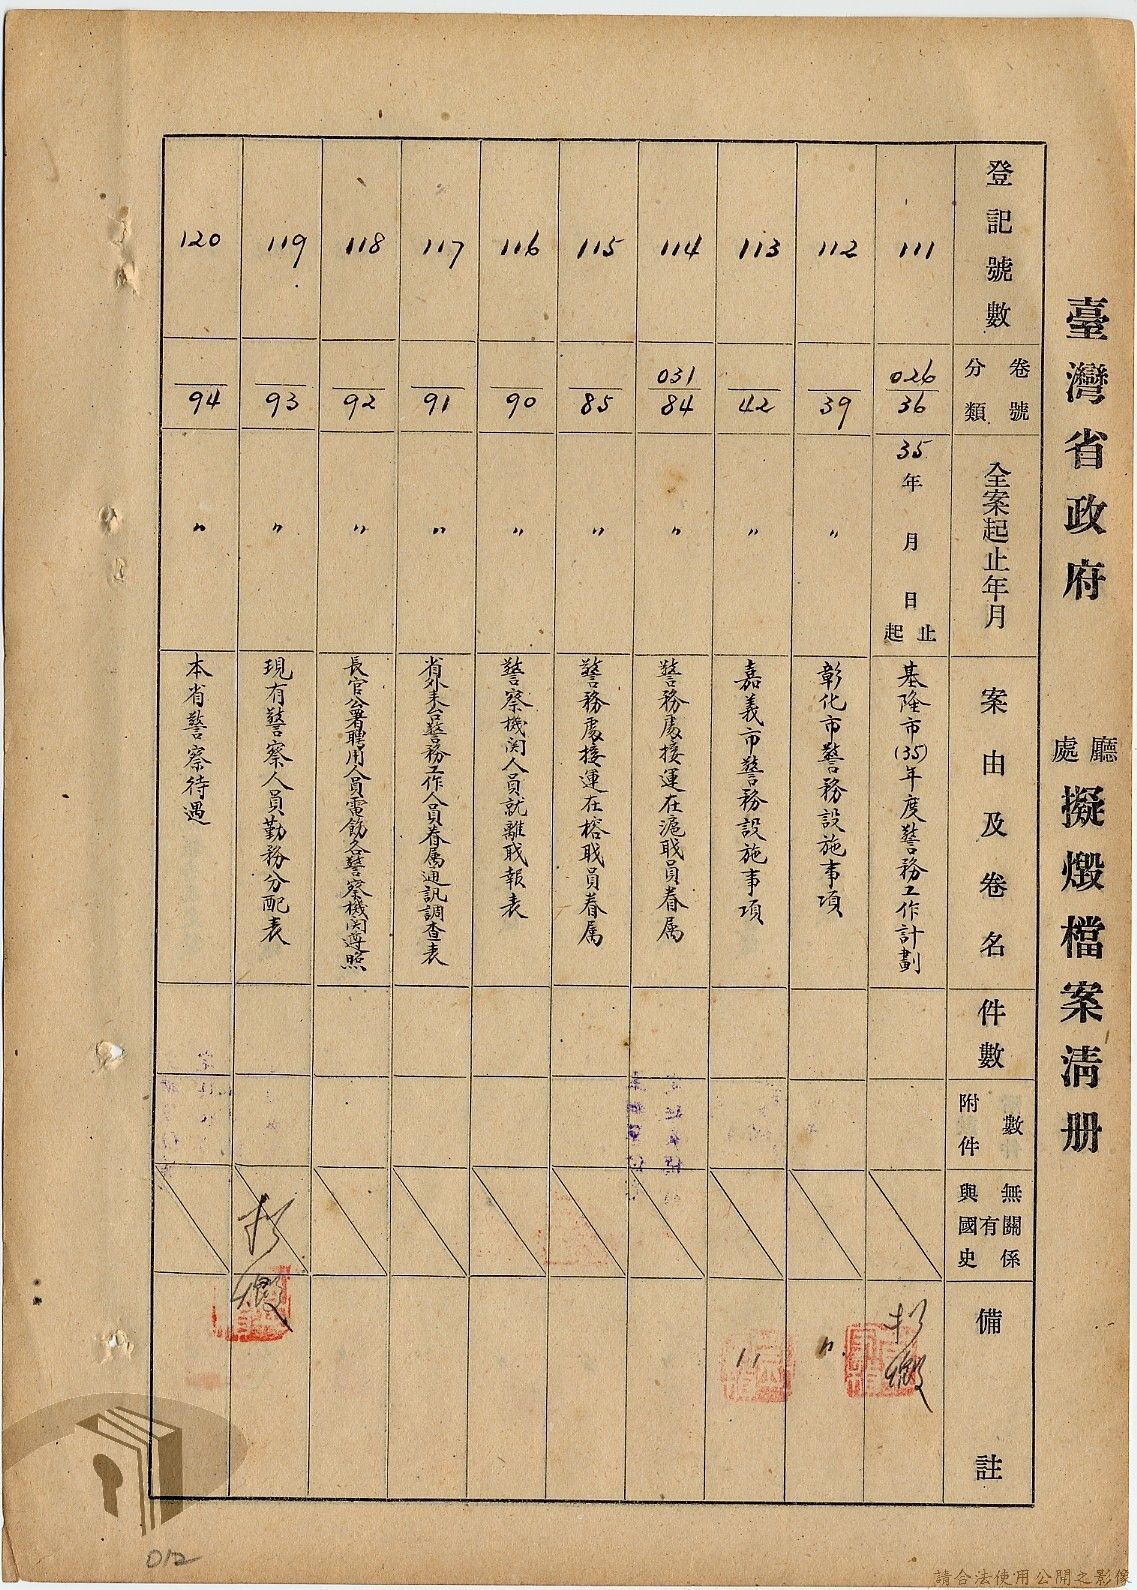 臺灣省政府 廳處 擬燬檔案清册
登記號數
卷號
分類
全案起止年月
案由及卷名
件數
附件數
與國史有無關係
備註
111
026/36
35年 月 日起止
基隆市(35)年度警務工作計劃
112
39
〃
彰化市警務設施事項
〃
113
42
〃
嘉義市警務設施事項
〃
114
031/84
〃
警務處接運在滬職員眷属
115
85
〃
警務處接運在榕职員眷属
116
90
〃
警察機関人員就離职報表
117
91
〃
省外来台警務工作人員眷属通訊調查表
118
92
〃
長官公署聘用人員電飭各警察機関遵照
119
93
〃
現有警察人員勤務分配表
120
94
〃
本省警察待遇
012
請合法使用公開之影像